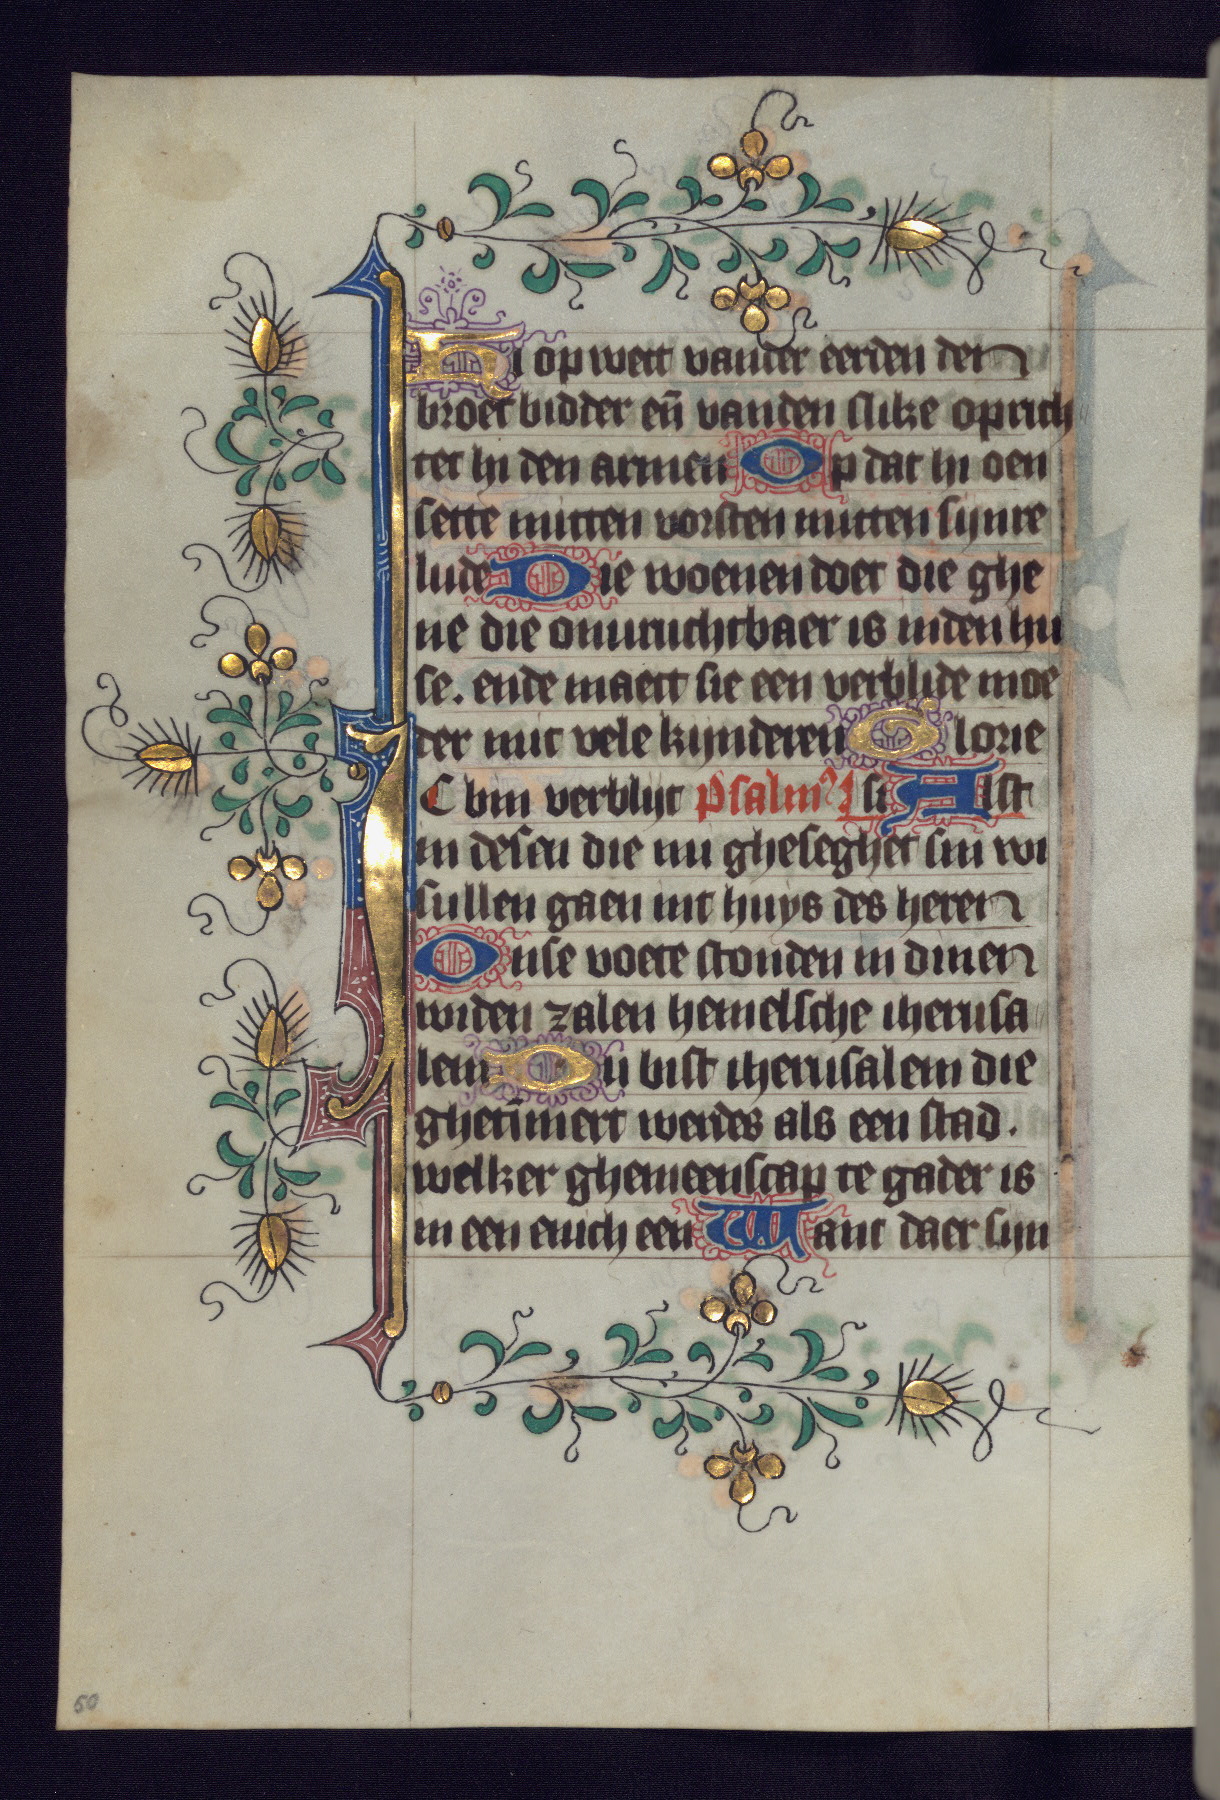 Hi op wect vander eerden den
broet bidder eñ vanden slike oprich
tet hi den armen Op dat hi oen
sette mitten vorsten mitten sijnre
lude Die woenen doet die ghe
ne die onuruchtbaer is inden hu
se. ende maect sie een verblide moe
der mit vele kijnderen Glorie
C bin verblijt Psalm Lsi Alst
in desen die mi gheseghet sin wi
sullen gaen int huys des heren
Onse voete stonden in dinen
widen zalen hemelsche iherusa
lem Du bist iherusalem die
ghetīmert werdes als een stad.
welker ghemeenscap te gader is
in een ewich een Want daer sijn
60